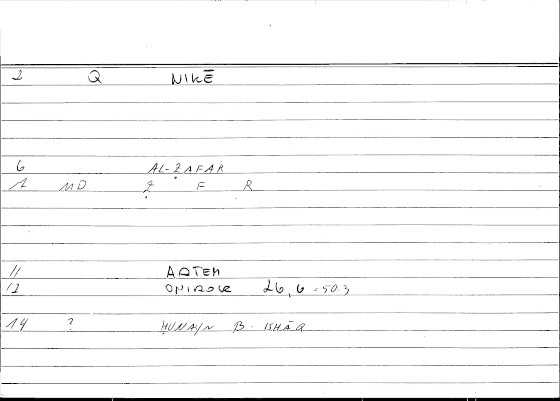 2 Q NIKĒ
6 AL-ẒAFAR
1 MD Ẓ F R
11 ARTEM
12 ONIROCR 26, 6 = 50.3
14 ? ḤUNAYN B. ISḤĀQ